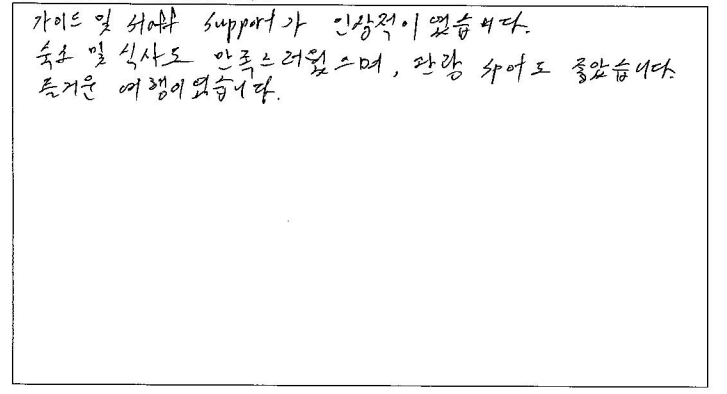 가이드 및 staff support가 인상적이었습니다.
숙소 및 식사도 만족스러웠으며, 관광 spot도 좋았습니다.
즐거운 여행이었습니다.